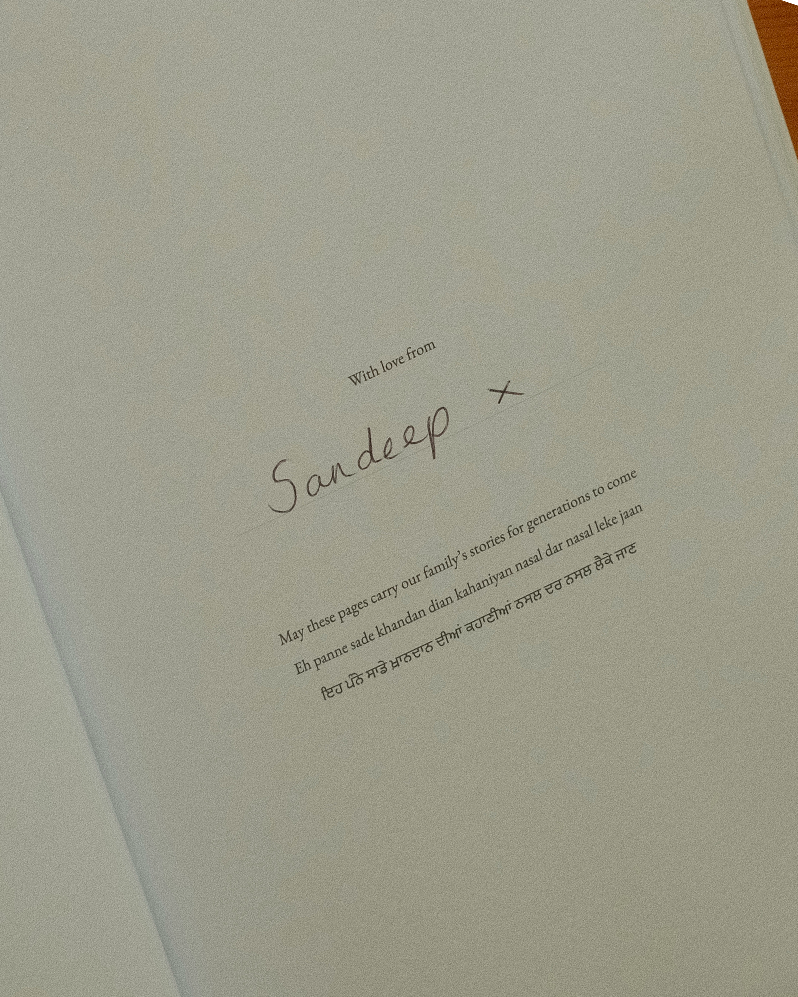 With love from
Sandeep x
May these pages carry our family's stories for generations to come
Eh panne sade khandan dian kahaniyan nasal dar nasal leke jaan
ਇਹ ਪੰਨੇ ਸਾਡੇ ਖ਼ਾਨਦਾਨ ਦੀਆਂ ਕਹਾਣੀਆਂ ਨਸਲ ਦਰ ਨਸਲ ਲੈਕੇ ਜਾਣ